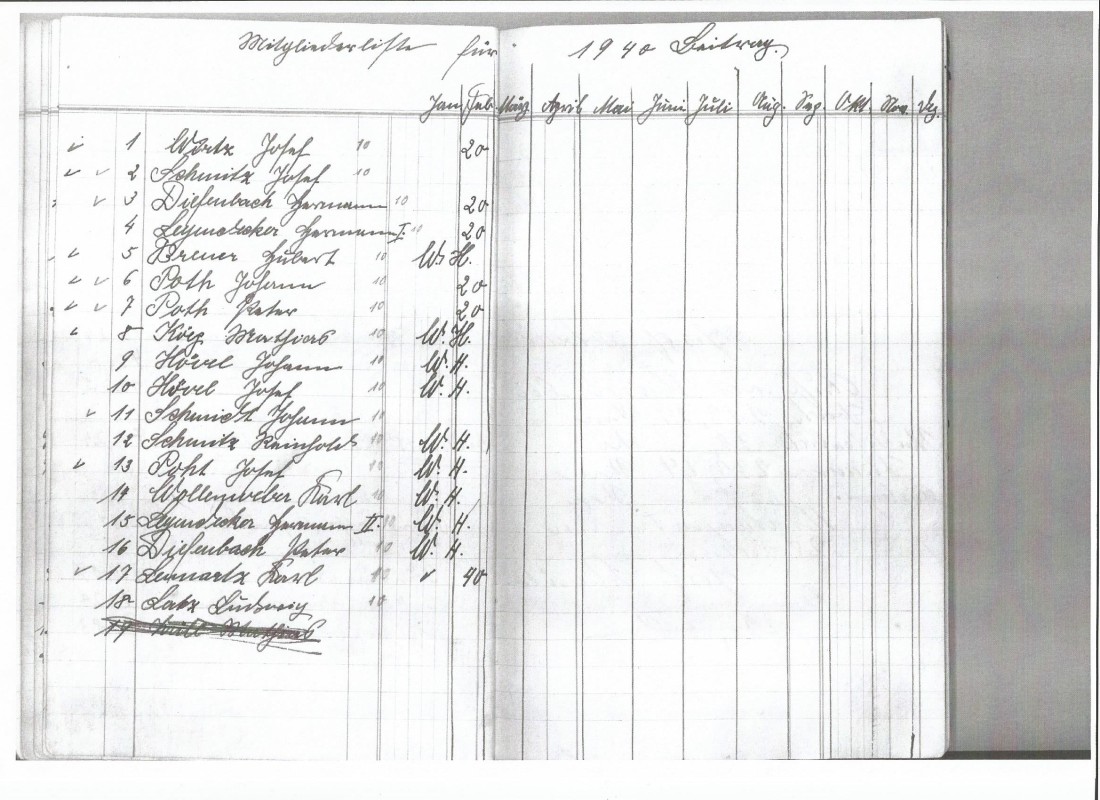 Mitgliederliste für 1940 Beitrag.
Jan. Feb. März April Mai Juni Juli Aug. Sep. Okt. Nov. Dez.
✓ 1 Wirtz Josef 10 20
✓ ✓ 2 Schmitz Josef 10
✓ 3 Diefenbach Hermann 10 20
4 Leyendecker Hermann I. 10 20
✓ 5 Breuer Hubert 10 W. H.
✓ ✓ 6 Poth Johann 10 20
✓ ✓ 7 Poth Peter 10 20
✓ 8 Mathias 10 W. H.
9 Hövel Johann 10 W. H.
10 Hövel Josef 10 W. H.
✓ 11 Schmidt Johann 10
12 Schmitz Reinhold 10 W. H.
✓ 13 Josef 10 W. H.
14 Wollenweber Karl 10 W. H.
15 Leyendecker Hermann II. 10 W. H.
16 Diefenbach Peter 10 W. H.
✓ 17 Lennartz Karl 10 ✓ 40
18 Latz Ludwig 10
19 Mathias